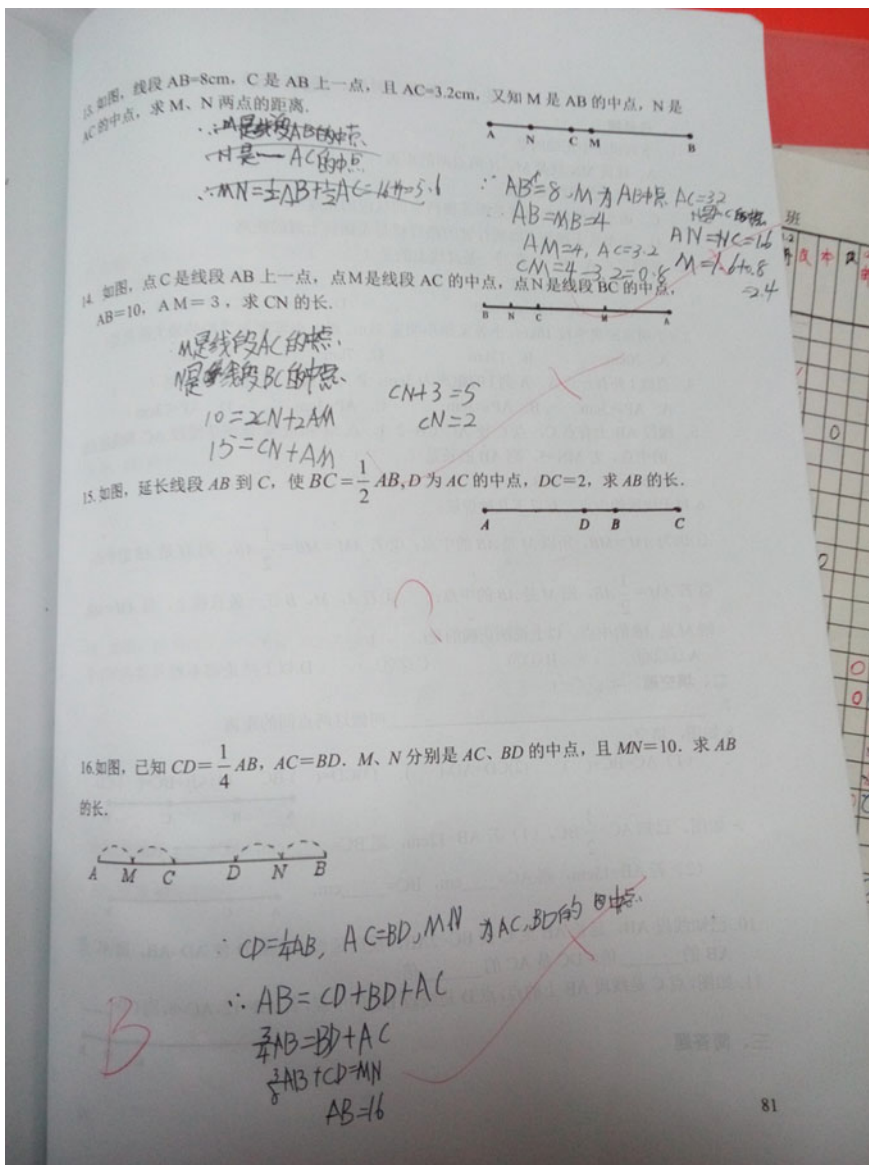 13.如图，线段 AB=8cm，C 是 AB 上一点，且 AC=3.2cm，又知 M 是 AB 的中点，N 是
AC 的中点，求 M、N 两点的距离.
∴M是线段AB的中点
N是一AC的中点
A N C M B
∵ AB=8,M为AB中点 AC=3.2
AB=MB=4
AN=NC=1.6
AM=4, AC=3.2
CM=4-3.2=0.8
M=1.6+0.8
=2.4
班
14. 如图，点C是线段 AB 上一点，点M是线段 AC 的中点，点N是线段 BC 的中点，
AB=10，AM=3，求 CN 的长.
B N C M A
M是线段AC的中点、
N是线段BC的中点、
10=2CN+2AM
15=CN+AM
CN+3=5
CN=2
15.如图，延长线段 AB 到 C，使 BC=1/2 AB,D 为 AC 的中点，DC=2，求 AB 的长.
A D B C
16.如图，已知 CD=1/4 AB，AC=BD．M、N 分别是 AC、BD 的中点，且 MN=10．求 AB
的长.
A M C D N B
∵ CD=1/4AB, AC=BD,MN为AC,BD的中点
∴ AB=CD+BD+AC
3/4AB=BD+AC
3/8AB+CD=MN
AB=16
B
81